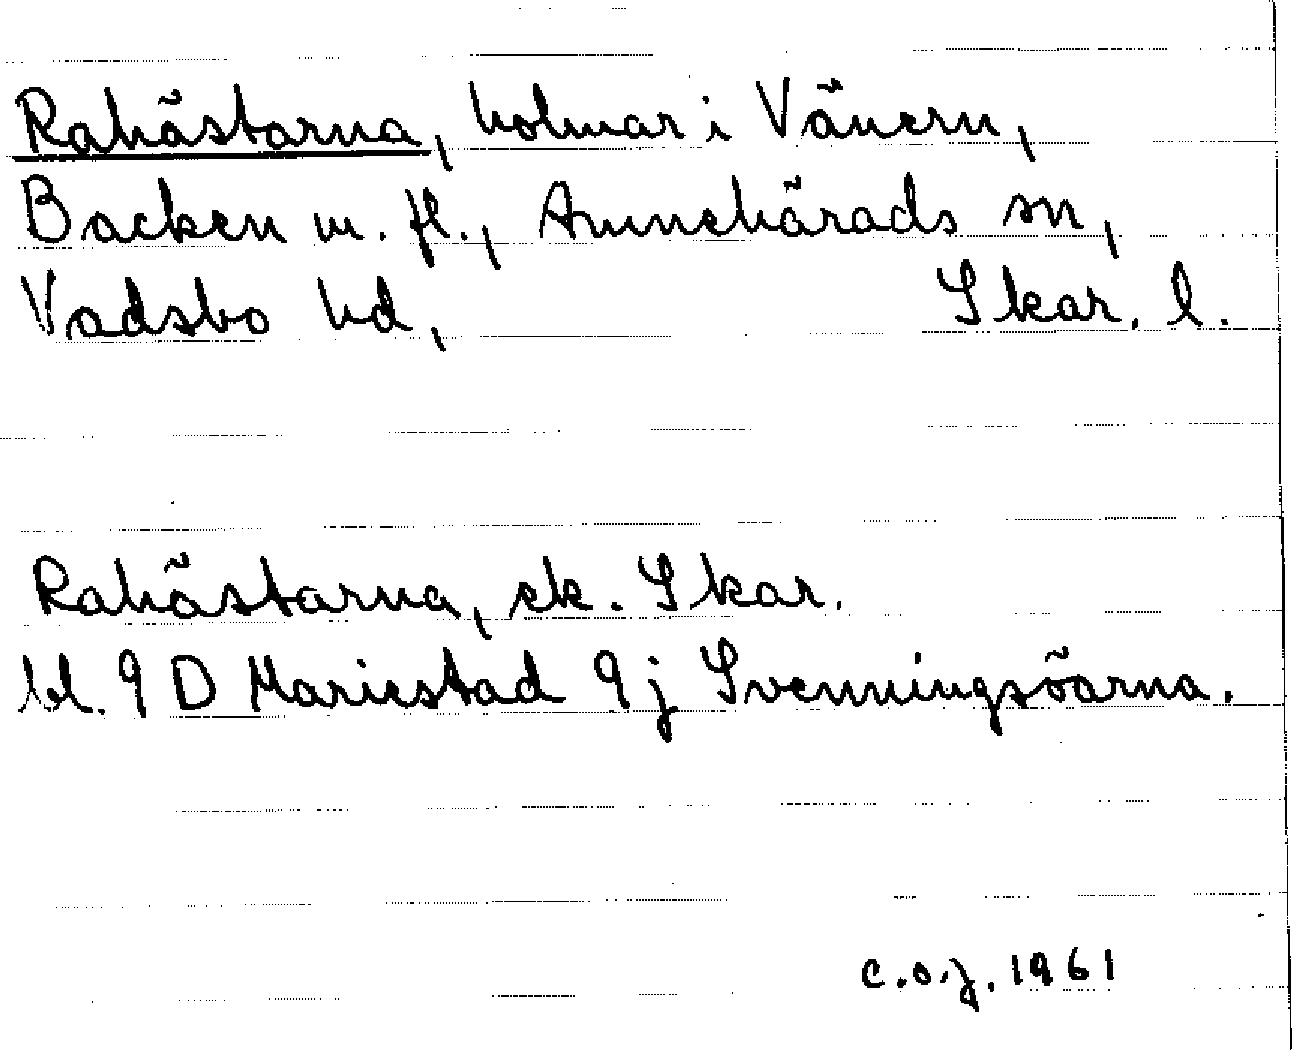 Rahästarna, holmar i Vänern,
Backen m. fl., Amnehärads sn,
Vadsbo hd, Skar. l.
Rahästarna, ek. Skar.
bl. 9 D Mariestad 9j Svenningsöarna.
C.O.J. 1961